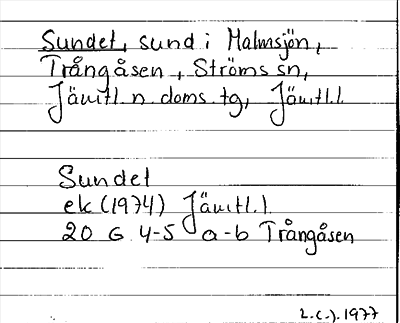 Sundet, sund i Malmsjön,
Trångåsen, Ströms sn,
Jämtl. n. doms. tg, Jämtl. l.
Sundet
ek (1974) Jämtl. l
20 G 4-5 a-b Trångåsen
1977